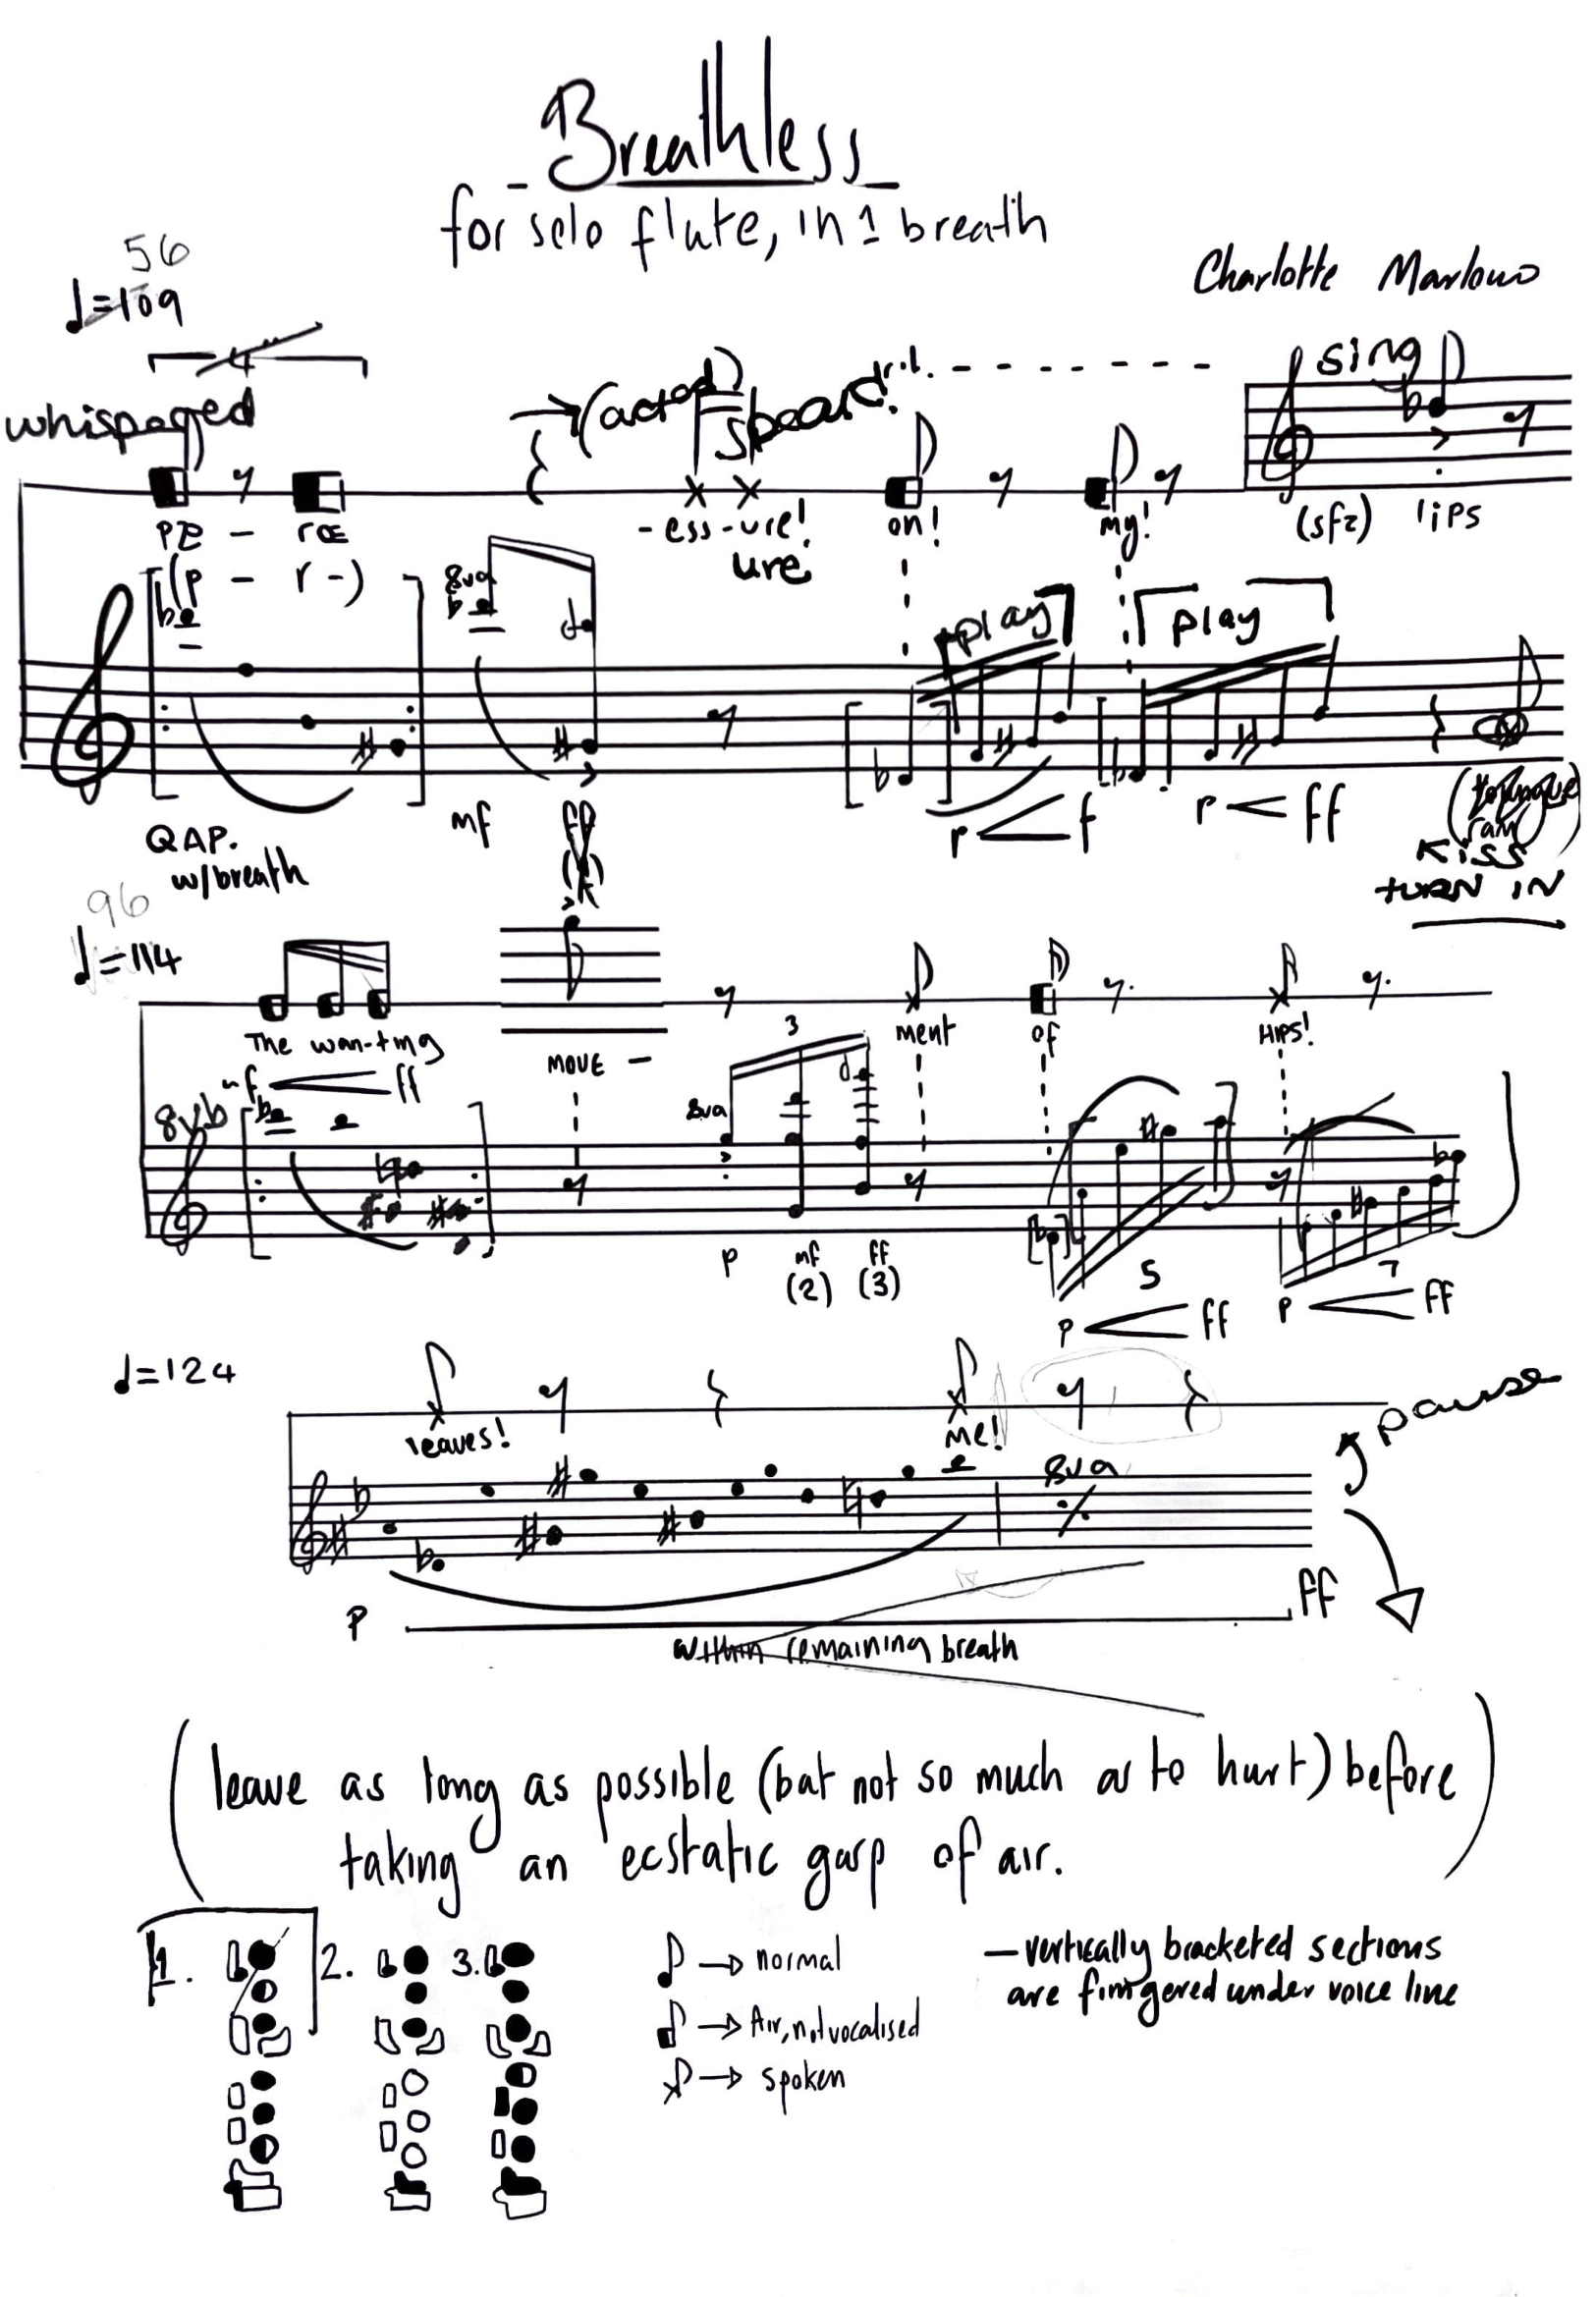 - Breathless -
for solo flute, in 1 breath
Charlotte Marlow
56
♩=109
4
whispered
→(acted) spoken!
rit. - - - - - - - -
sing
PE - rœ
-ess-ure! on! my! (sfz) lips
ure
(p - r -)
8va
play
play
QAP.
w/breath
mf ff p f p ff
(tongue ram)
KISS
TURN IN
96
♩=114
The wan-ting MOVE - ment of HIPS!
mf ff
8vb
8va
3
p mf ff
(2) (3)
5 7
p ff p ff
♩=124
leaves! me!
8va
pause
p ff
within remaining breath
(leave as long as possible (but not so much as to hurt) before
taking an ecstatic gasp of air.)
1. 2. 3.
♪ → normal
→ Air, not vocalised
→ spoken
— vertically bracketed sections
are fingered under voice line